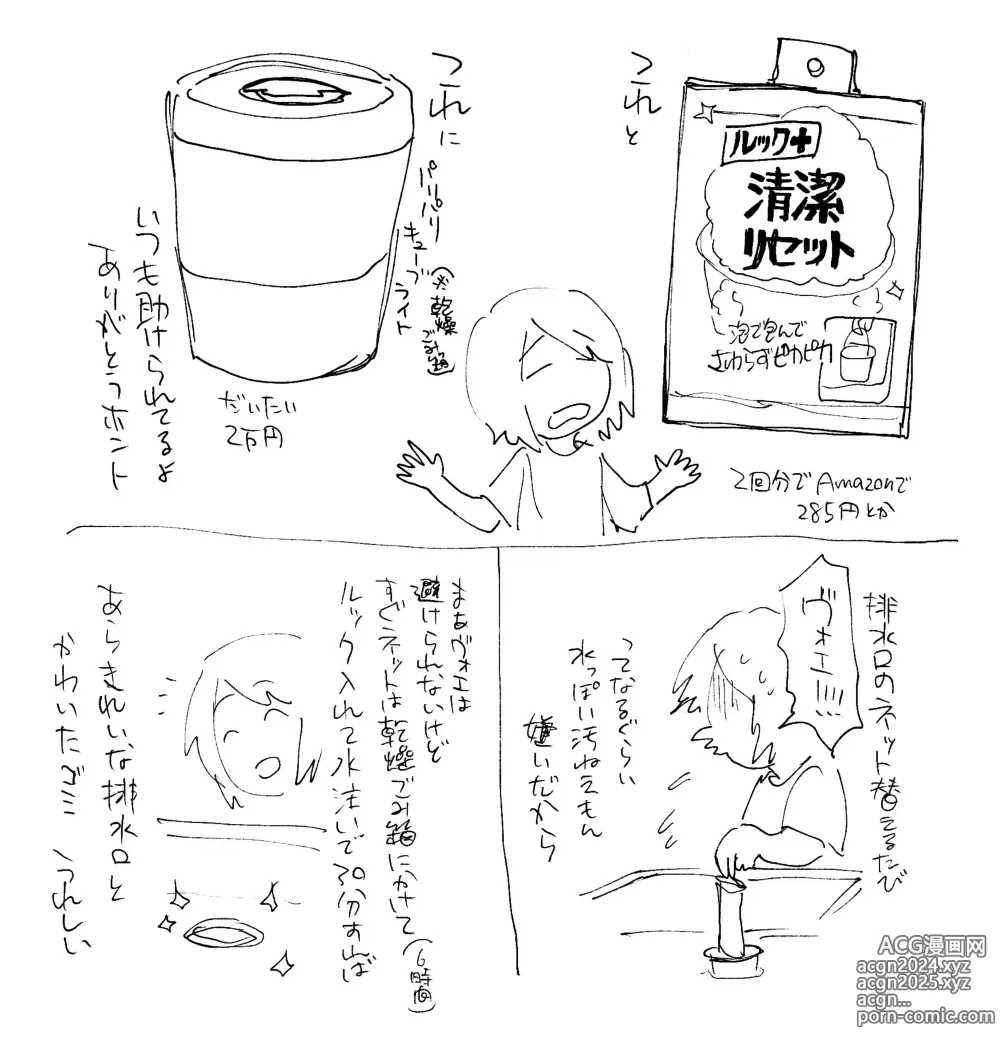 これと
ルック+
清潔
リセット
泡で包んで
さわらずピカピカ
2回分でAmazonで
285円とか
これに
パリパリ
キューブ
ライト
(※乾燥
ごみ箱)
だいたい
2万円
いつも助けられてるよ
ありがとうホント
排水口のネット替えるたび
ヴォエ!!!!
ってなるぐらい
水っぽい汚ねえもん
嫌いだから
まあヴォエは
避けられないけど
すぐネットは乾燥ごみ箱にかけて(6時間)
ルック入れて水注いで30分すれば
あらきれいな排水口と
かわいたゴミ うれしい
ACG漫画网
acgn2024.xyz
acgn2025.xyz
acgn...
porn-comic.com